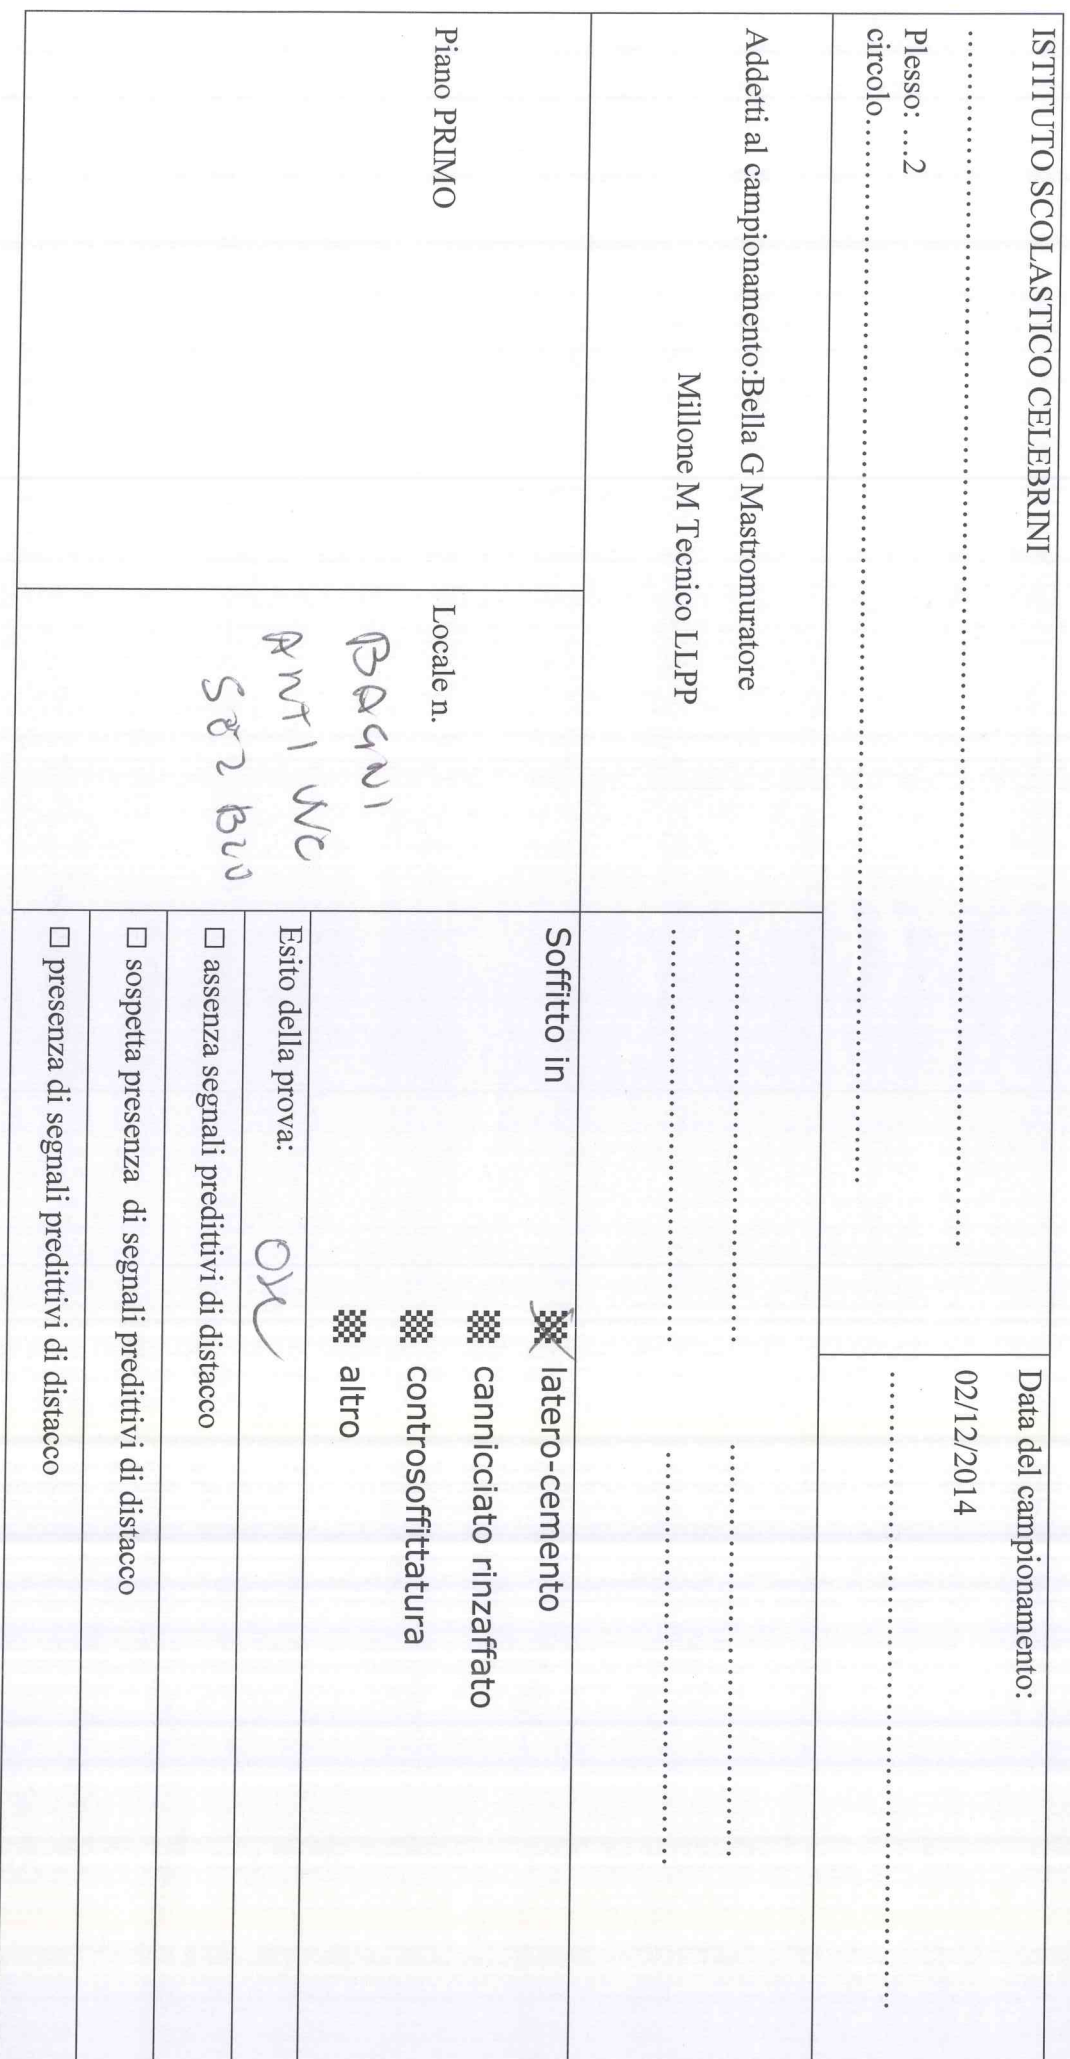 ISTITUTO SCOLASTICO CELEBRINI
Plesso: ...2
circolo
Data del campionamento:
02/12/2014
Addetti al campionamento:Bella G Mastromuratore
Millone M Tecnico LLPP
Piano PRIMO
Locale n.
BAGNI
ANTI WC
Soffitto in
latero-cemento
cannicciato rinzaffato
controsoffittatura
altro
Esito della prova: OK
□ assenza segnali predittivi di distacco
□ sospetta presenza di segnali predittivi di distacco
□ presenza di segnali predittivi di distacco